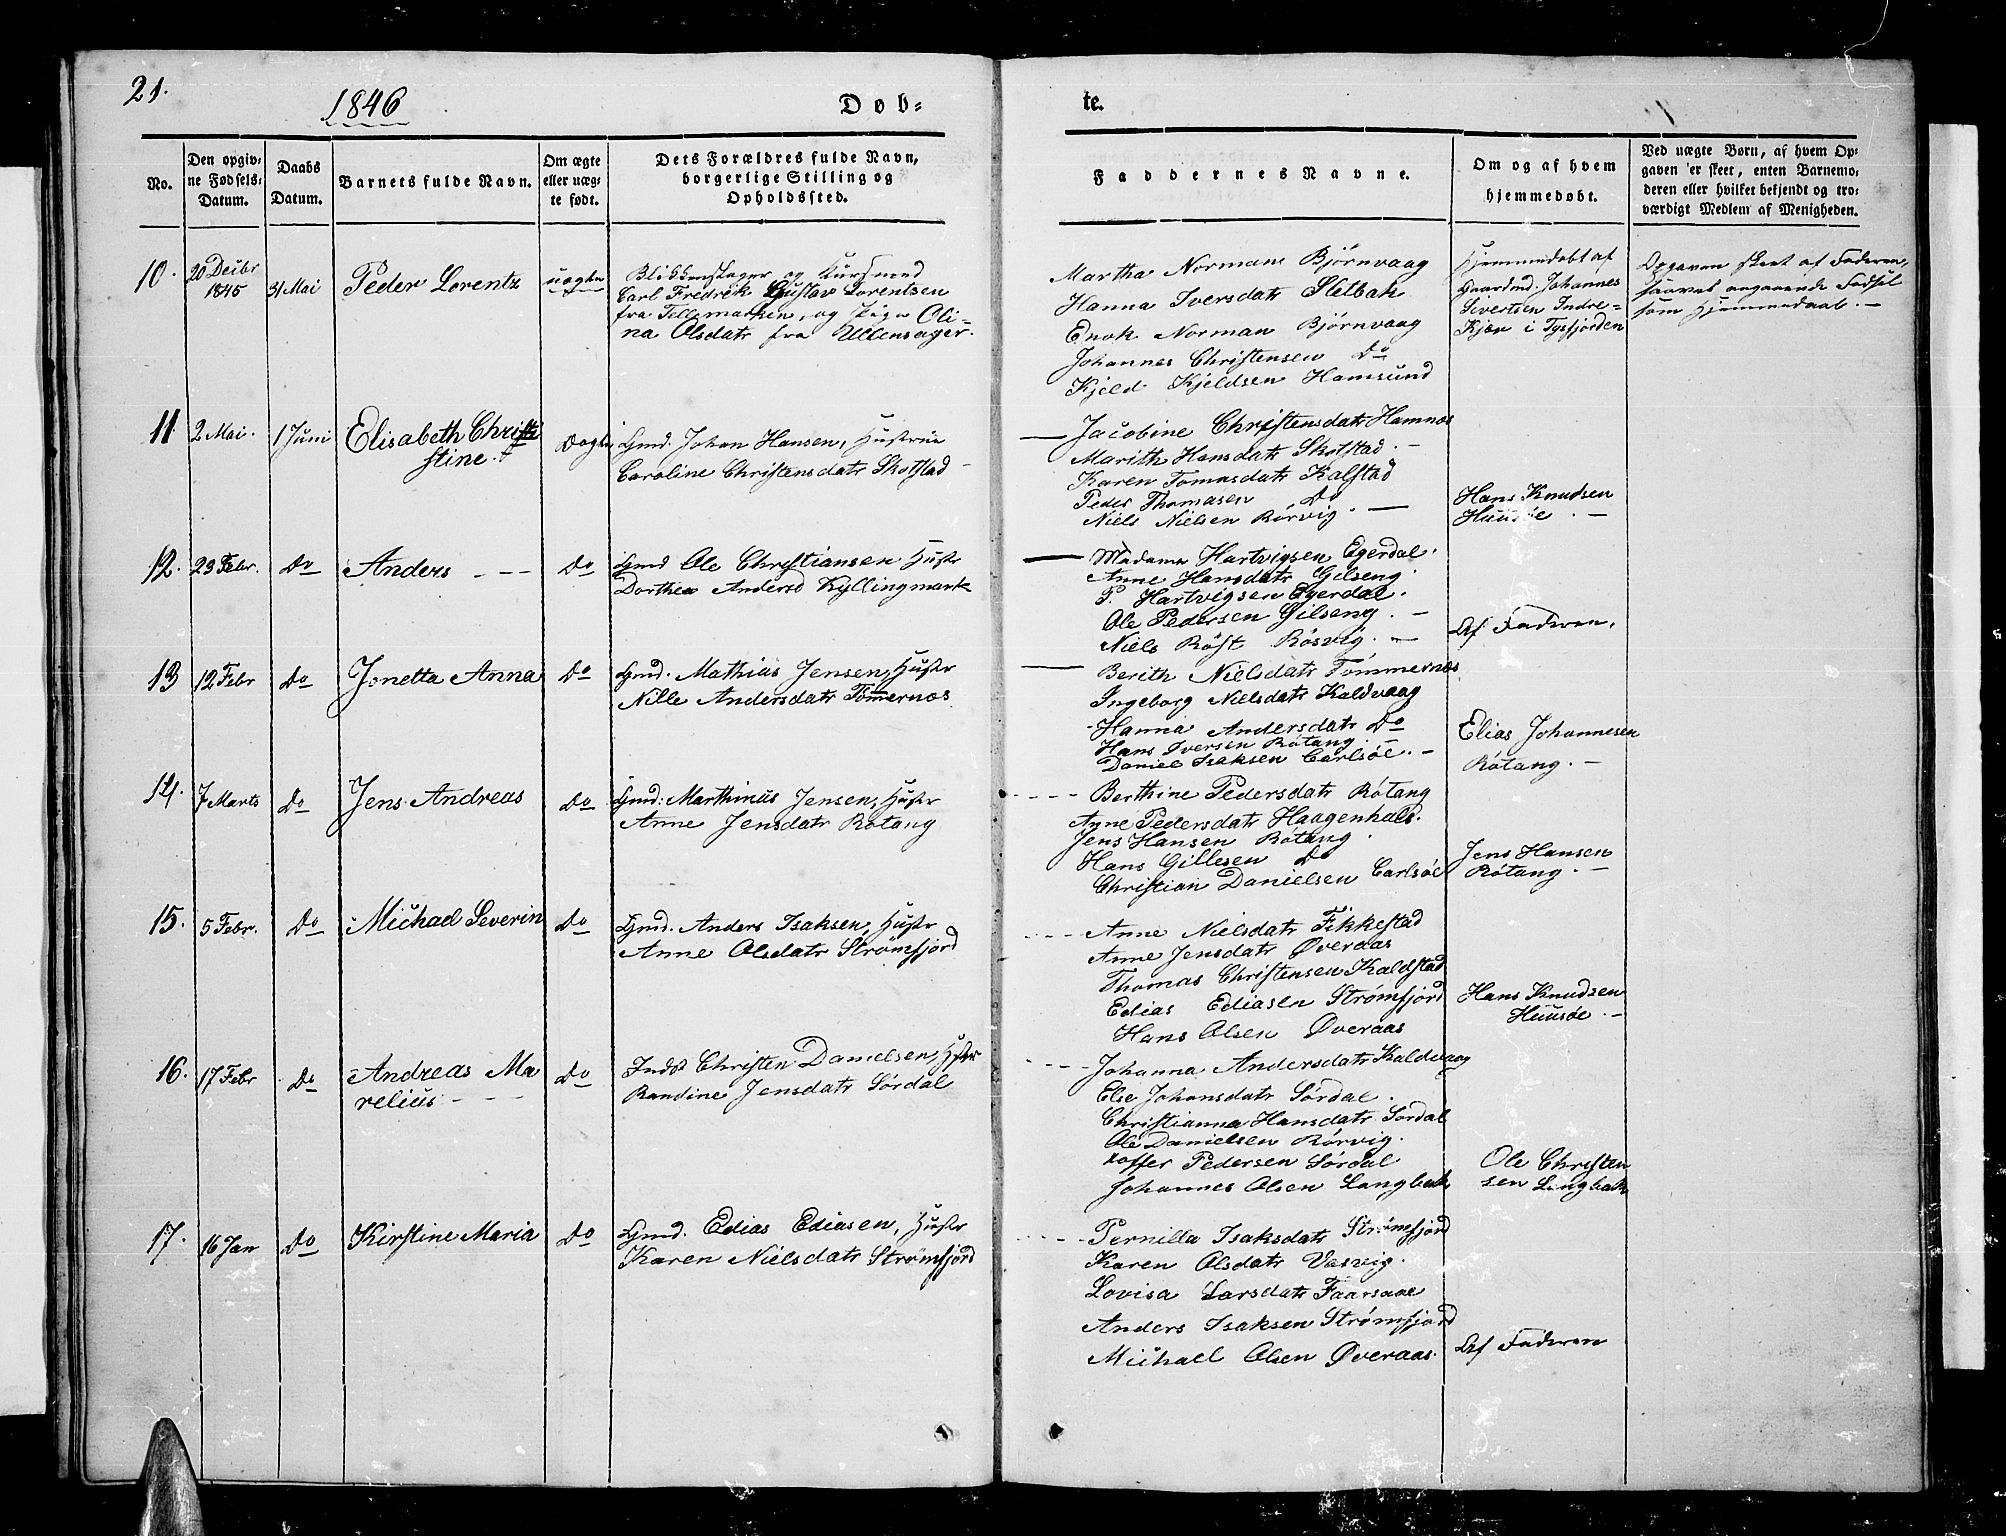 21.
1846
Døb-
te.
No.
Den opgiv-
ne Fødsels-
Datum.
Daabs
Datum.
Barnets fulde Navn.
Om ægte
eller uæg-
te født.
Dets Forældres fulde Navn,
borgerlige Stilling og
Opholdssted.
Faddernes Navne.
Om og af hvem
hjemmedøbt.
Ved uægte Børn, af hvem Op-
gaven er skeet, enten Barnemo-
deren eller hvilket bekjendt og tro-
værdigt Medlem af Menigheden.
10.
20 Decbr
1845
31 Mai
Peder Lorentz
uægte
Blikkenslager og
Carl Fredrik Gustav Lorentsen
fra Tellemarken, og Pige Oli-
na Olsdatr fra Ullensager.
Martha Norman Bjørnvaag
Hanna Iversdatr Sletbak
Enok Norman Bjørnvaag
Johannes Christensen Do
Kjeld Kjeldsen Hamsund
Hjemmedøbt af
Gaardmd. Johannes
Sivertsen Indre-
Kjær i Tysfjorden
Opgaven skeet af Faderen,
saavel angaaende Fødsel
som Hjemmedaab. -
11
2 Mai.
1 Juni
Elisabeth Chri
stine.
ægte
Gmd. Johan Hansen, Hustrue
Caroline Christensdatr Skotstad -
Jacobine Christensdatr Hamnæs
Marith Hansdatr Skotstad. -
Karen Tomasdatr Kalstad
Peder Thomasen Do
Niels Nielsen Rørvig. -
Hans Knudsen
Huusøe. -
12.
23 Febr.
Do
Anders - -
Do
Gmd Ole Christiansen Hustr
Dorthea Andersd Kyllingmark
Madame Hartvigsen Egerdal.
Anne Hansdatr Gilseng.
P. Hartvigsen Egerdal.
Ole Pedersen Gilseng. -
Niels Røst Røsvig. -
Af Faderen.
13
12 Febr
Do
Jonetta Anna
Do
Gmd. Mathias Jensen, Hustr
Nille Andersdatr Tømmernæs
Berith Nielsdatr Tømmernæs
Ingeborg Nielsdatr Kaldvaag
Hanna Andersdatr Do
Hans Iversen Røtang.
Daniel Isaksen Carlsøe. -
Elias Johannesen
Røtang. -
14.
7 Marts
Do
Jens Andreas
Do
Gmd. Marthinus Jensen, Hustr
Anne Jensdatr Røtang
Berthine Pedersdatr Røtang
Anne Pedersdatr Haagenhals.
Jens Hansen Røtang.
Hans Gillesen Do
Christian Danielsen Carlsøe
Jens Hansen
Røtang. -
15.
5 Febr.
Do
Michael Severin
Do
Gmd. Anders Isaksen, Hustr
Anne Olsdatr Strømfjord
Anne Nielsdatr Fikkestad
Anne Jensdatr Øveraas
Thomas Christensen Kaldstad
Edias Ediasen Strømfjord
Hans Olsen Øveraas
Hans Knudsen
Huusøe. -
16.
17 Febr
Do
Andreas Ma
relius - -
Do
Indst Christen Danielsen, Hstr
Randine Jensdatr Sørdal
Johanna Andersdatr Kaldvaag
Else Johansdatr Sørdal.
Christianna Hansdatr Sørdal
Ole Danielsen Rørvig.
Koffer Pedersen Sørdal
Johannes Olsen Langbak
Ole Christen
sen Langbak
17.
16 Jan
Do
Kirstine Maria
Do
Gmd. Edias Ediasen, Hustr
Karen Nielsdatr Strømfjord
Pernilla Isaksdatr Strømfjord
Karen Olsdatr Vasvig.
Lovisa Larsdatr
Anders Isaksen Strømfjord
Michael Olsen Øveraas.
Af Faderen